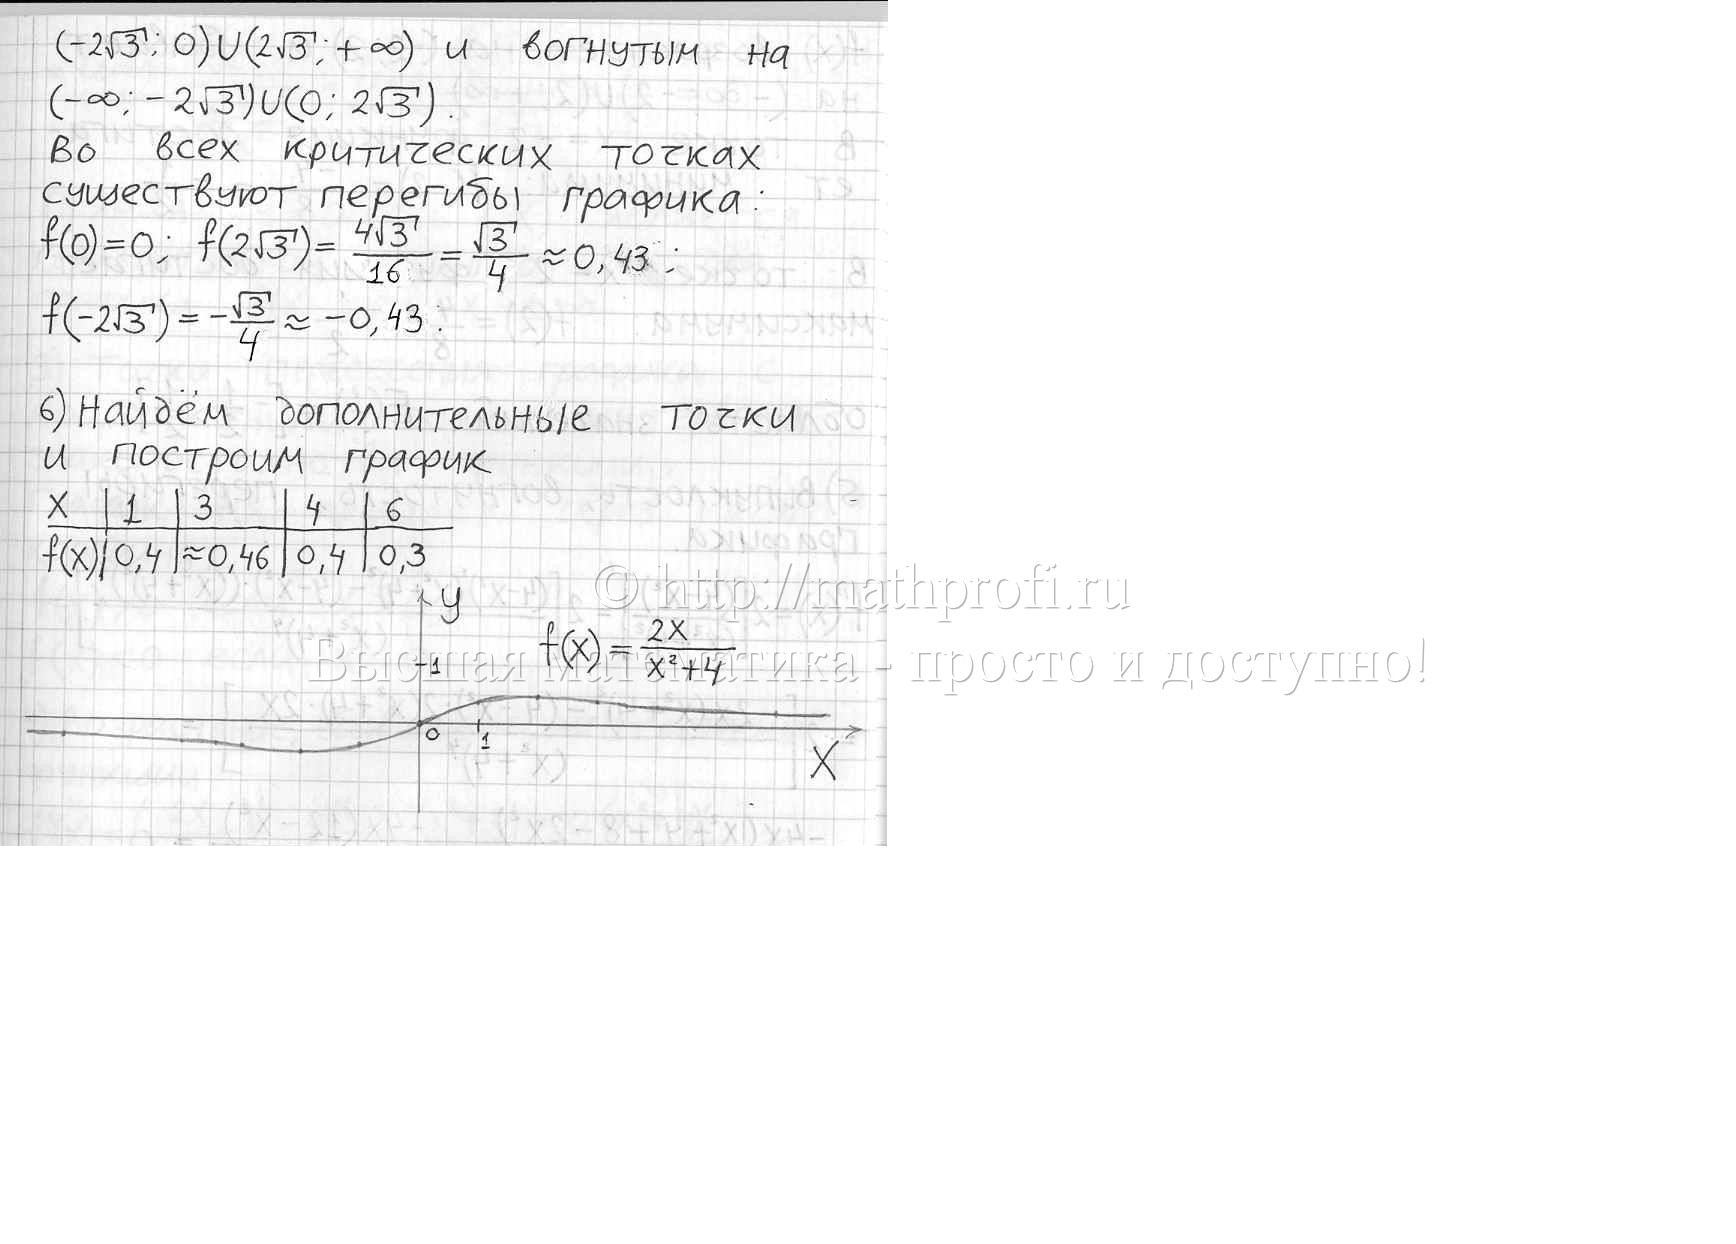 (-2√3; 0)∪(2√3; +∞) и вогнутым на
(-∞; -2√3)∪(0; 2√3).
Во всех критических точках
существуют перегибы графика:
f(0)=0; f(2√3)= 4√3/16 = √3/4 ≈ 0,43;
f(-2√3) = -√3/4 ≈ -0,43.
6) Найдём дополнительные точки
и построим график
x | 1 | 3 | 4 | 6
f(x) | 0,4 | ≈0,46 | 0,4 | 0,3
© http://mathprofi.ru
y
f(x) = 2x/(x²+4)
1
Высшая математика - просто и доступно!
0
1
X